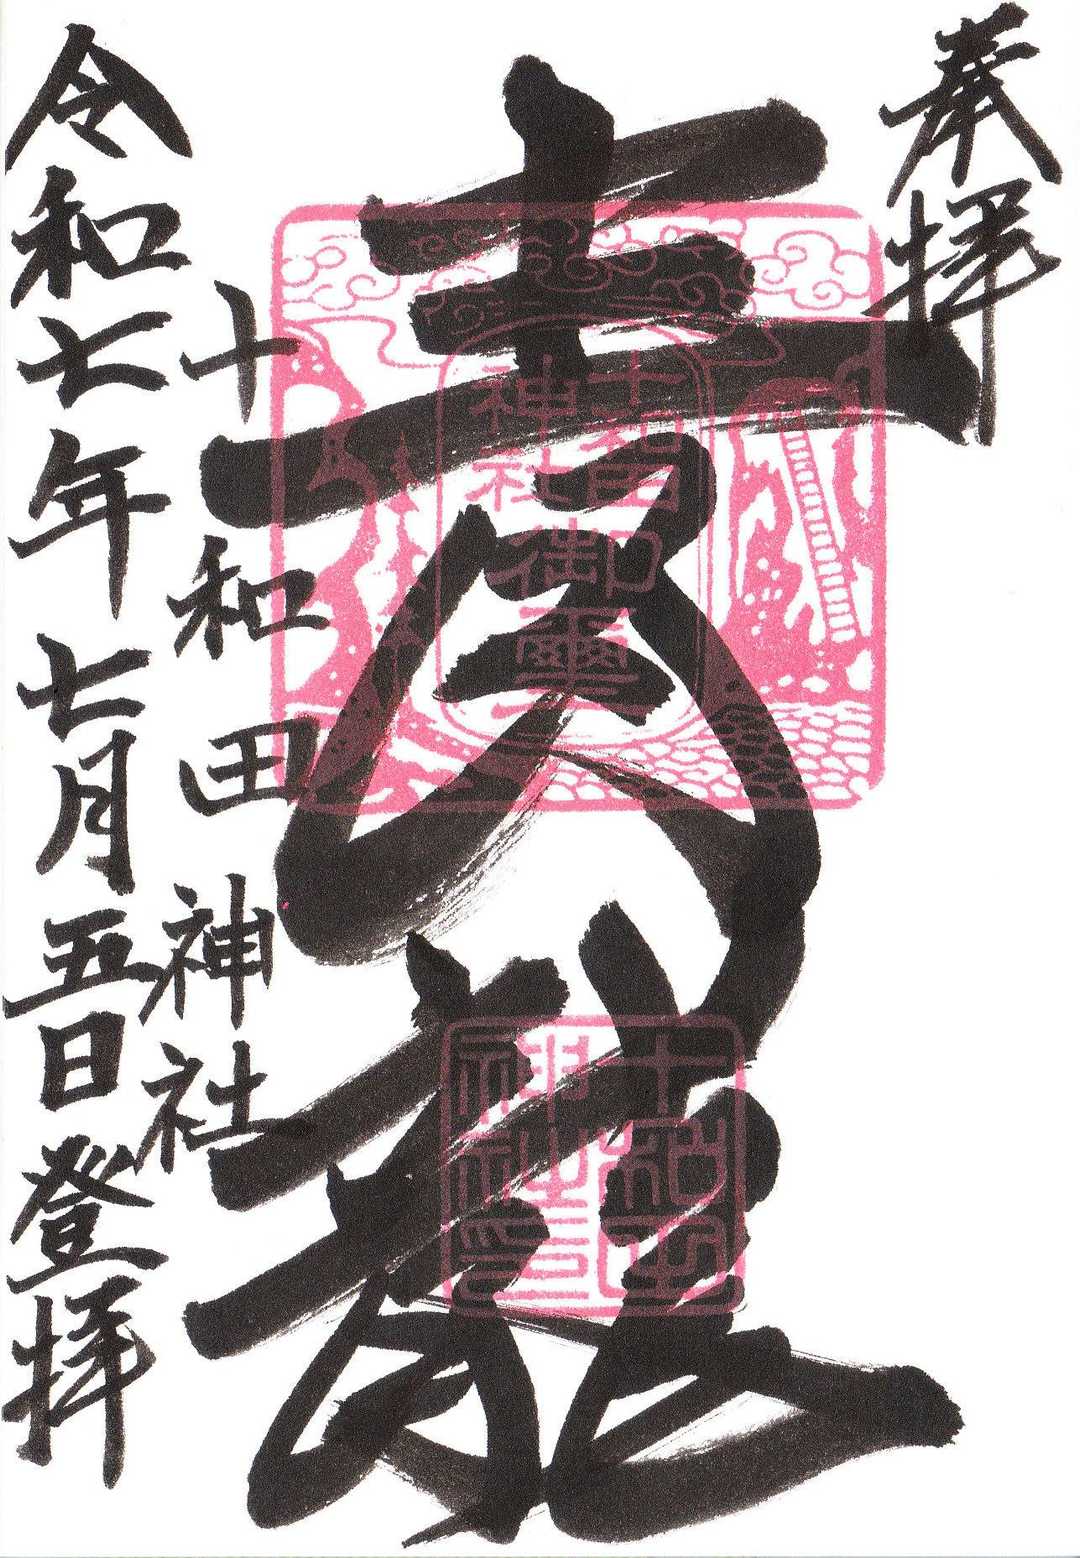 奉拝
十和田
神社
御璽
十和田
神社印
十和田神社
令和七年七月五日登拝